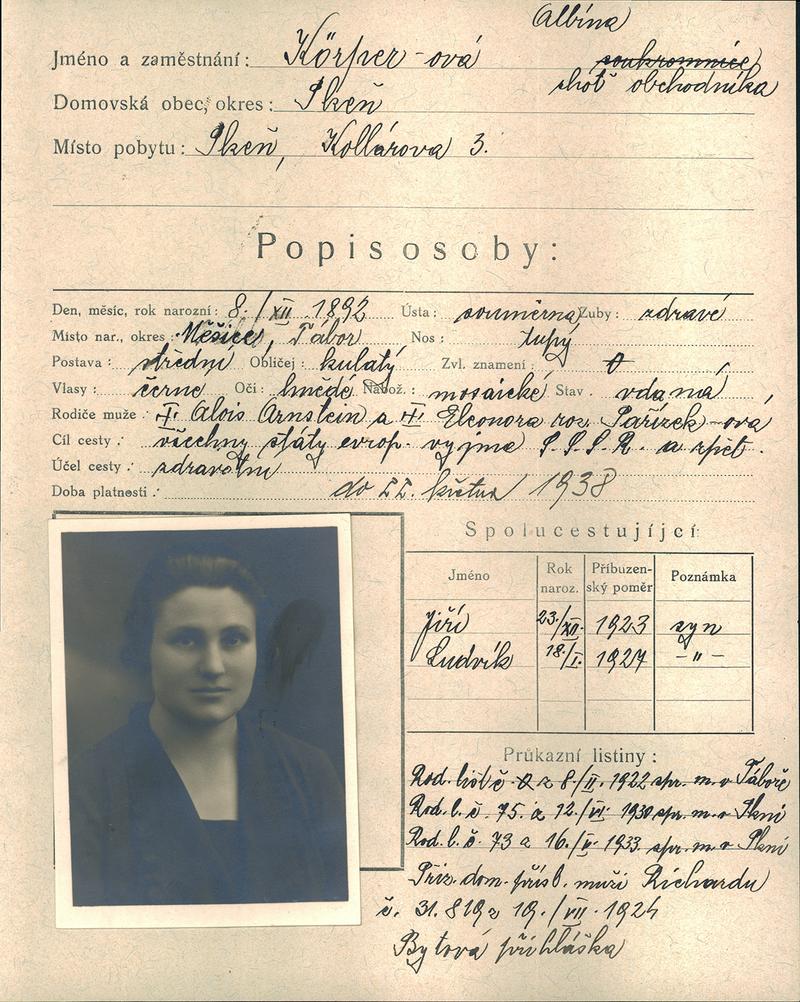 Albína
Jméno a zaměstnání: Körper-ová soukromnice
choť obchodníka
Domovská obec, okres: Plzeň
Místo pobytu: Plzeň, Kollárova 3.
Popis osoby:
Den, měsíc, rok narození: 8./XII. 1892 Ústa: souměrná Zuby: zdravé
Místo nar., okres: Měšice, Tábor Nos: tupý
Postava: střední Obličej: kulatý Zvl. znamení: 0
Vlasy: černé Oči: hnědé Nábož.: mosaické Stav. vdaná
Rodiče muže: Alois Arnstein a Eleonora roz. Pařízek-ová
Cíl cesty: všechny státy evrop. vyjma S.S.S.R. a zpět.
Účel cesty: zdravotní
Doba platnosti: do 22. května 1938
Spolucestující:
Jméno Rok naroz. Příbuzenský poměr Poznámka
Jiří 23./XII. 1923 syn
Ludvík 18./I. 1927 -"-
Průkazní listiny:
Rod. list č. z 8./II. 1922 spr. m. v Táboře
Rod. l. č. 75. z 12./VI. 1930 spr. m. v Plzni
Rod. l. č. 73 z 16./V. 1933. spr. m. v Plzni
Přiz. dom. přísl. muži Richardu
č. 31.819 z 19./VII. 1924
Bytová přihláška